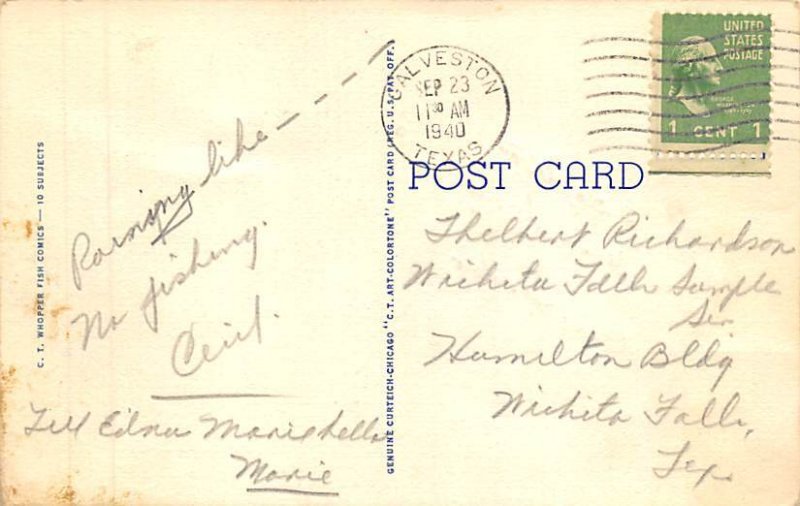 C. T. WHOPPER FISH COMICS — 10 SUBJECTS
Raining like — — — —
No fishing.
Cecil.
Tell Edna Marie hello
Marie
GENUINE CURTEICH-CHICAGO "C. T. ART-COLORTONE" POST CARD (REG. U.S. PAT. OFF.)
GALVESTON
SEP 23
11 30 AM
1940
TEXAS
UNITED
STATES
POSTAGE
1 CENT 1
POST CARD
Thelbert Richardson
Wichita Falls Sample
Ser
Hamilton Bldg
Wichita Falls,
Tex.